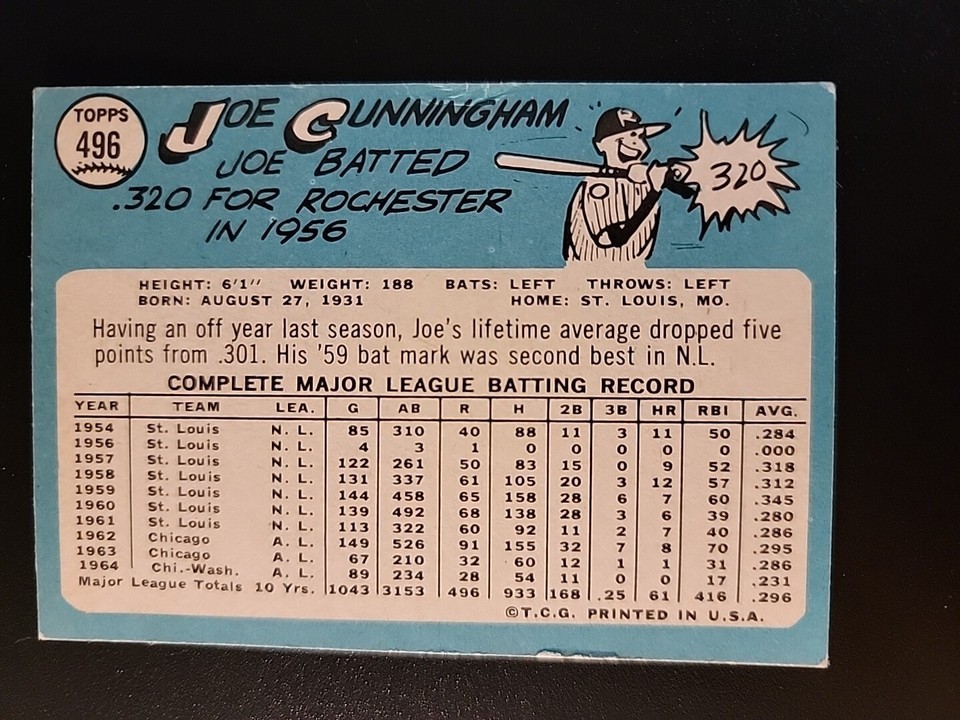 TOPPS
496
JOE CUNNINGHAM
JOE BATTED
.320 FOR ROCHESTER
IN 1956
320
HEIGHT: 6'1" WEIGHT: 188 BATS: LEFT THROWS: LEFT
BORN: AUGUST 27, 1931 HOME: ST. LOUIS, MO.
Having an off year last season, Joe's lifetime average dropped five
points from .301. His '59 bat mark was second best in N.L.
COMPLETE MAJOR LEAGUE BATTING RECORD
YEAR TEAM LEA. G AB R H 2B 3B HR RBI AVG.
1954 St. Louis N. L. 85 310 40 88 11 3 11 50 .284
1956 St. Louis N. L. 4 3 1 0 0 0 0 0 .000
1957 St. Louis N. L. 122 261 50 83 15 0 9 52 .318
1958 St. Louis N. L. 131 337 61 105 20 3 12 57 .312
1959 St. Louis N. L. 144 458 65 158 28 6 7 60 .345
1960 St. Louis N. L. 139 492 68 138 28 3 6 39 .280
1961 St. Louis N. L. 113 322 60 92 11 2 7 40 .286
1962 Chicago A. L. 149 526 91 155 32 7 8 70 .295
1963 Chicago A. L. 67 210 32 60 12 1 1 31 .286
1964 Chi.-Wash. A. L. 89 234 28 54 11 0 0 17 .231
Major League Totals 10 Yrs. 1043 3153 496 933 168 .25 61 416 .296
©T.C.G. PRINTED IN U.S.A.